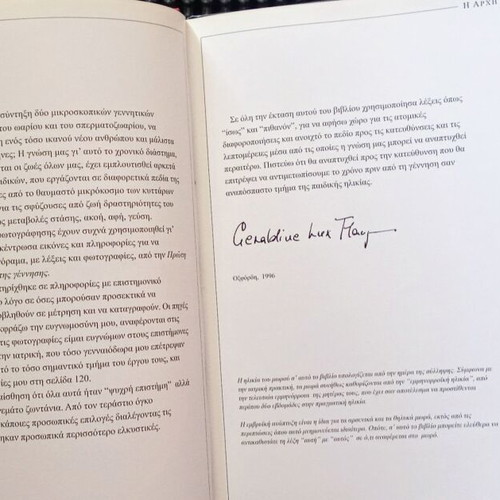 σύντηξη δύο μικροσκοπικών γεννητικών
του ωαρίου και του σπερματοζωαρίου, να
η ενός τόσο ικανού νέου ανθρώπου και μάλιστα
ήνες; Η γνώση μας γι' αυτό το χρονικό διάστημα,
ται οι ζωές όλων μας, έχει εμπλουτισθεί αρκετά
αιδικών, που εργάζονται σε διαφορετικά πεδία της
ες από το θαυμαστό μικρόκοσμο των κυττάρων
για τις σφύζουσες από ζωή δραστηριότητες του
ις μεταβολές στάσης, ακοή, αφή, γεύση.
ωτογράφησης έχουν συχνά χρησιμοποιηθεί γι'
κέντρωσα εικόνες και πληροφορίες για να
όραμα, με λέξεις και φωτογραφίες, από την Πρώτη
της γέννησης.
τηρίχθηκε σε πληροφορίες με επιστημονικό
ο λόγο σε όσες μπορούσαν προσεκτικά να
οβληθούν σε μέτρηση και να καταγραφούν. Οι πηγές
φράζω την ευγνωμοσύνη μου, αναφέρονται στις
τις φωτογραφίες είμαι ευγνώμων στους επιστήμονες
την ιατρική, που τόσο γενναιόδωρα μου επέτρεψαν
υτό το τόσο σημαντικό τμήμα του έργου τους, και
ίες μου στη σελίδα 120.
αίσθηση ότι όλα αυτά ήταν "ψυχρή επιστήμη" αλλά
γεμάτο ζωντάνια. Από τον τεράστιο όγκο
κάποιες προσωπικές επιλογές διαλέγοντας τις
ηκαν προσωπικά περισσότερο ελκυστικές.
Η ΑΡΧΗ
Σε όλη την έκταση αυτού του βιβλίου χρησιμοποίησα λέξεις όπως
"ίσως" και "πιθανόν", για να αφήσω χώρο για τις ατομικές
διαφοροποιήσεις και ανοιχτό το πεδίο προς τις κατευθύνσεις και τις
λεπτομέρειες μέσα από τις οποίες η γνώση μας μπορεί να αναπτυχθεί
περαιτέρω. Πιστεύω ότι θα αναπτυχθεί προς την κατεύθυνση που θα
επιτρέψει να αντιμετωπίσουμε το χρόνο πριν από τη γέννηση σαν
αναπόσπαστο τμήμα της παιδικής ηλικίας.
Geraldine Lux Flanagan
Οξφόρδη, 1996
Η ηλικία του μωρού σ' αυτό το βιβλίο υπολογίζεται από την ημέρα της σύλληψης. Σύμφωνα με
την ιατρική πρακτική, τα μωρά συνήθως καθορίζονται από την "εμμηνορροϊκή ηλικία", από
την τελευταία εμμηνόρροια της μητέρας τους, που έχει σαν αποτέλεσμα να προστίθενται
περίπου δύο εβδομάδες στην πραγματική ηλικία.
Η εμβρυϊκή ανάπτυξη είναι η ίδια για τα αρσενικά και τα θηλυκά μωρά, εκτός από τις
περιπτώσεις όπου αυτό μνημονεύεται ιδιαίτερα. Οπότε, σ' αυτό το βιβλίο μπορείτε ελεύθερα να
αντικαθιστάτε τη λέξη "αυτή" με "αυτός" σε ό,τι αναφέρεται στο μωρό.